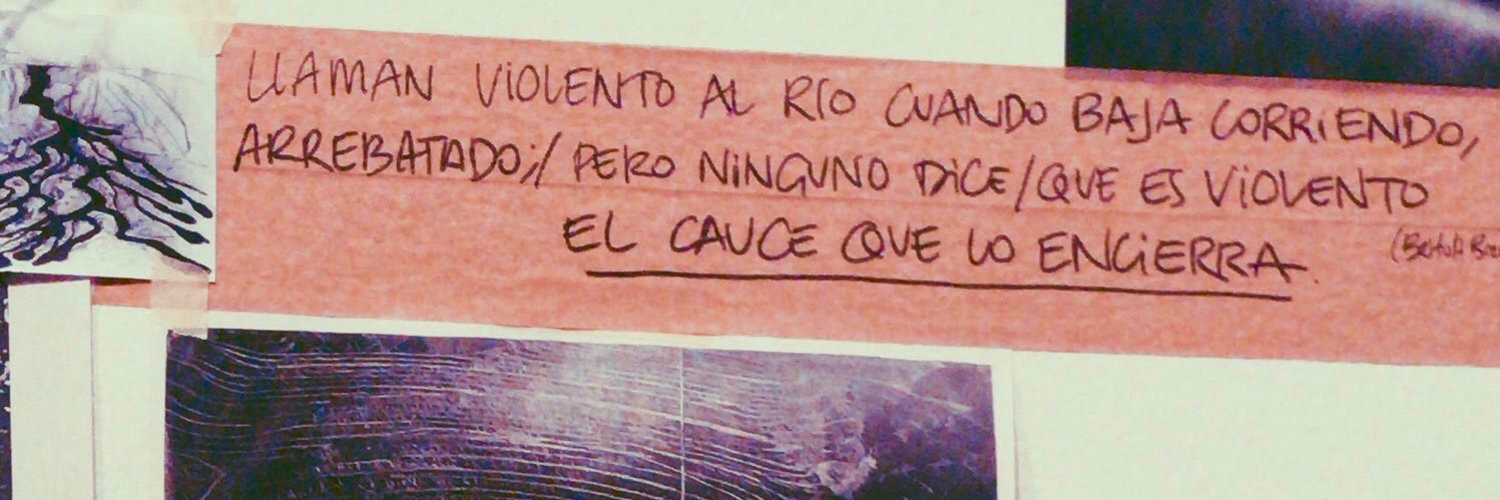 LLAMAN VIOLENTO AL RÍO CUANDO BAJA CORRIENDO,
ARREBATADO;/ PERO NINGUNO DICE/QUE ES VIOLENTO
EL CAUCE QUE LO ENCIERRA.